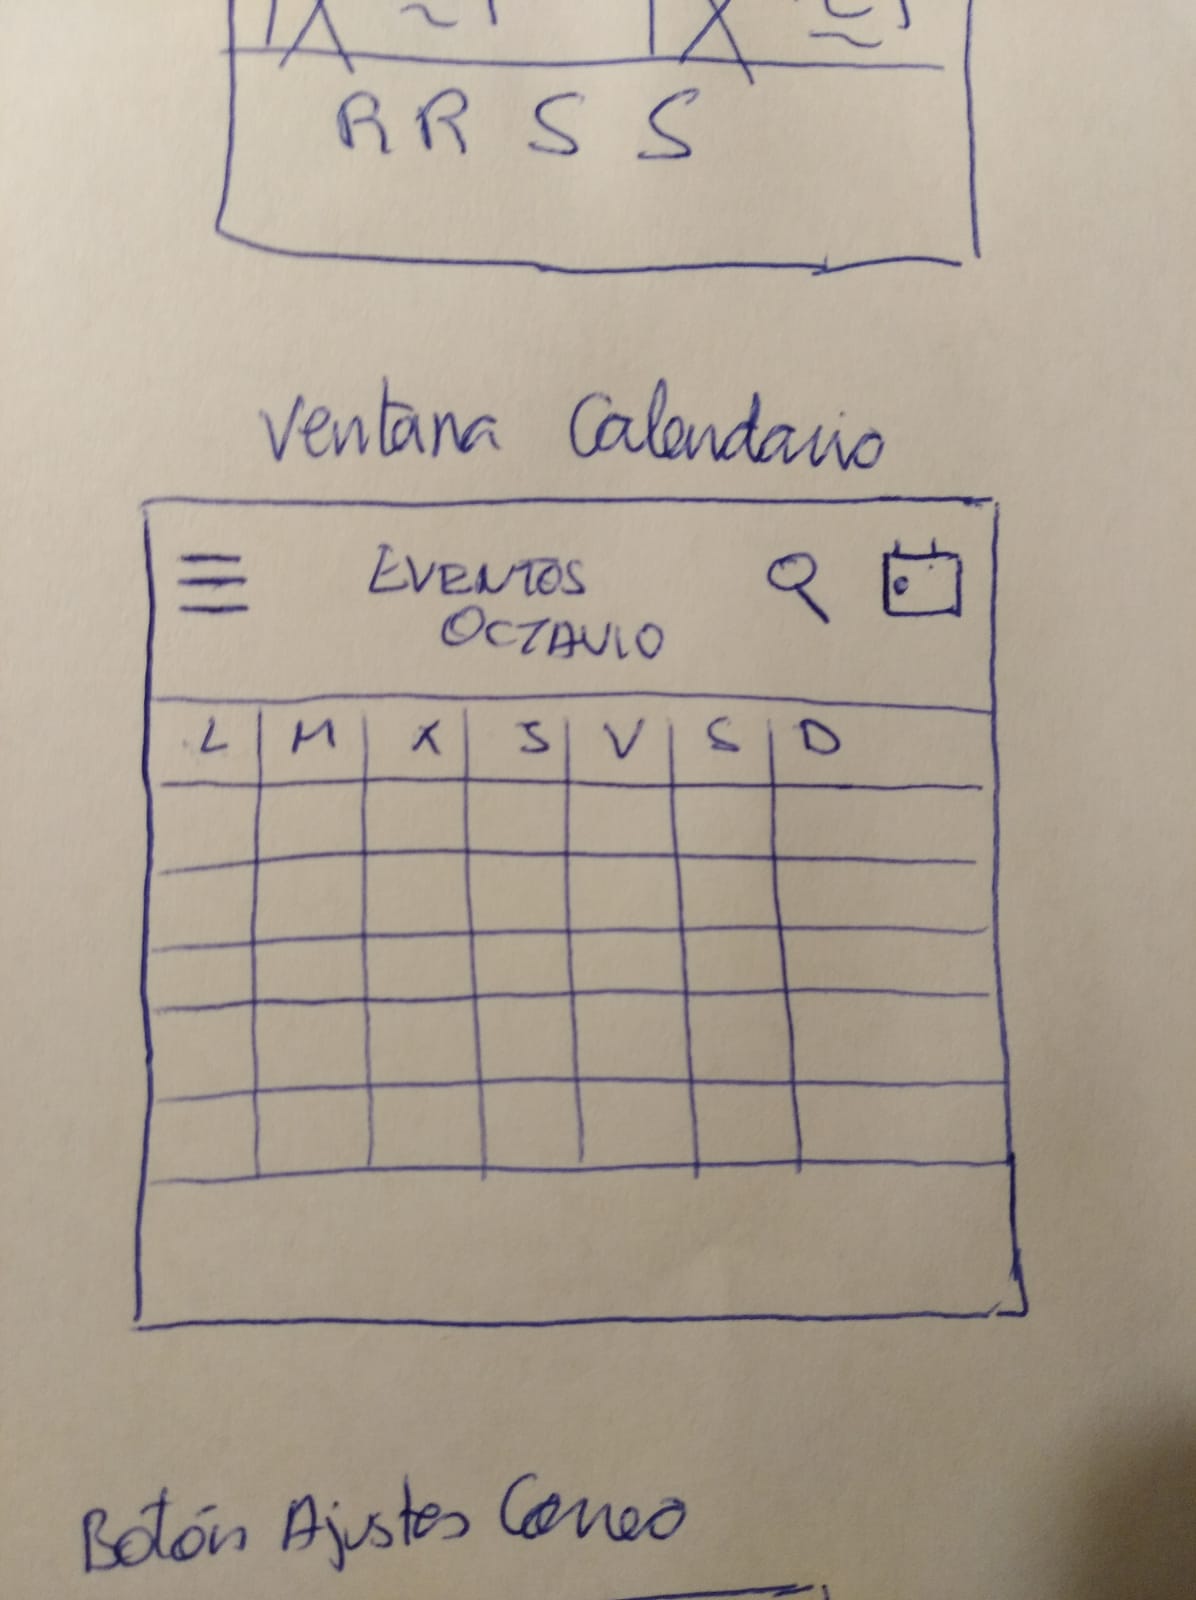 RRSS
Ventana Calendario
EVENTOS
OCTAVIO
L M X J V S D
Botón Ajustes Correo